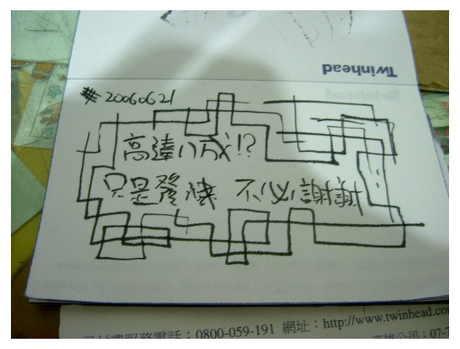 Twinhead
#20060621
高達八成!?
只是發洩 不必謝謝
服務電話：0800-059-191 網址：http://www.twinhead.com
公司：07-7